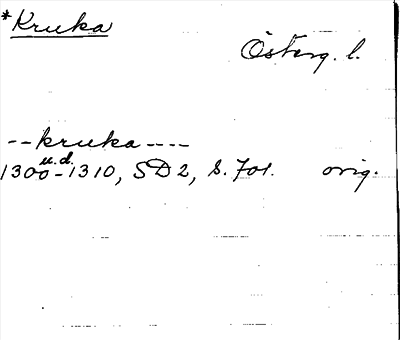 *Kruka
Österg. l.
--kruka----
u.d.
1300-1310, SD 2, s. 701. orig.